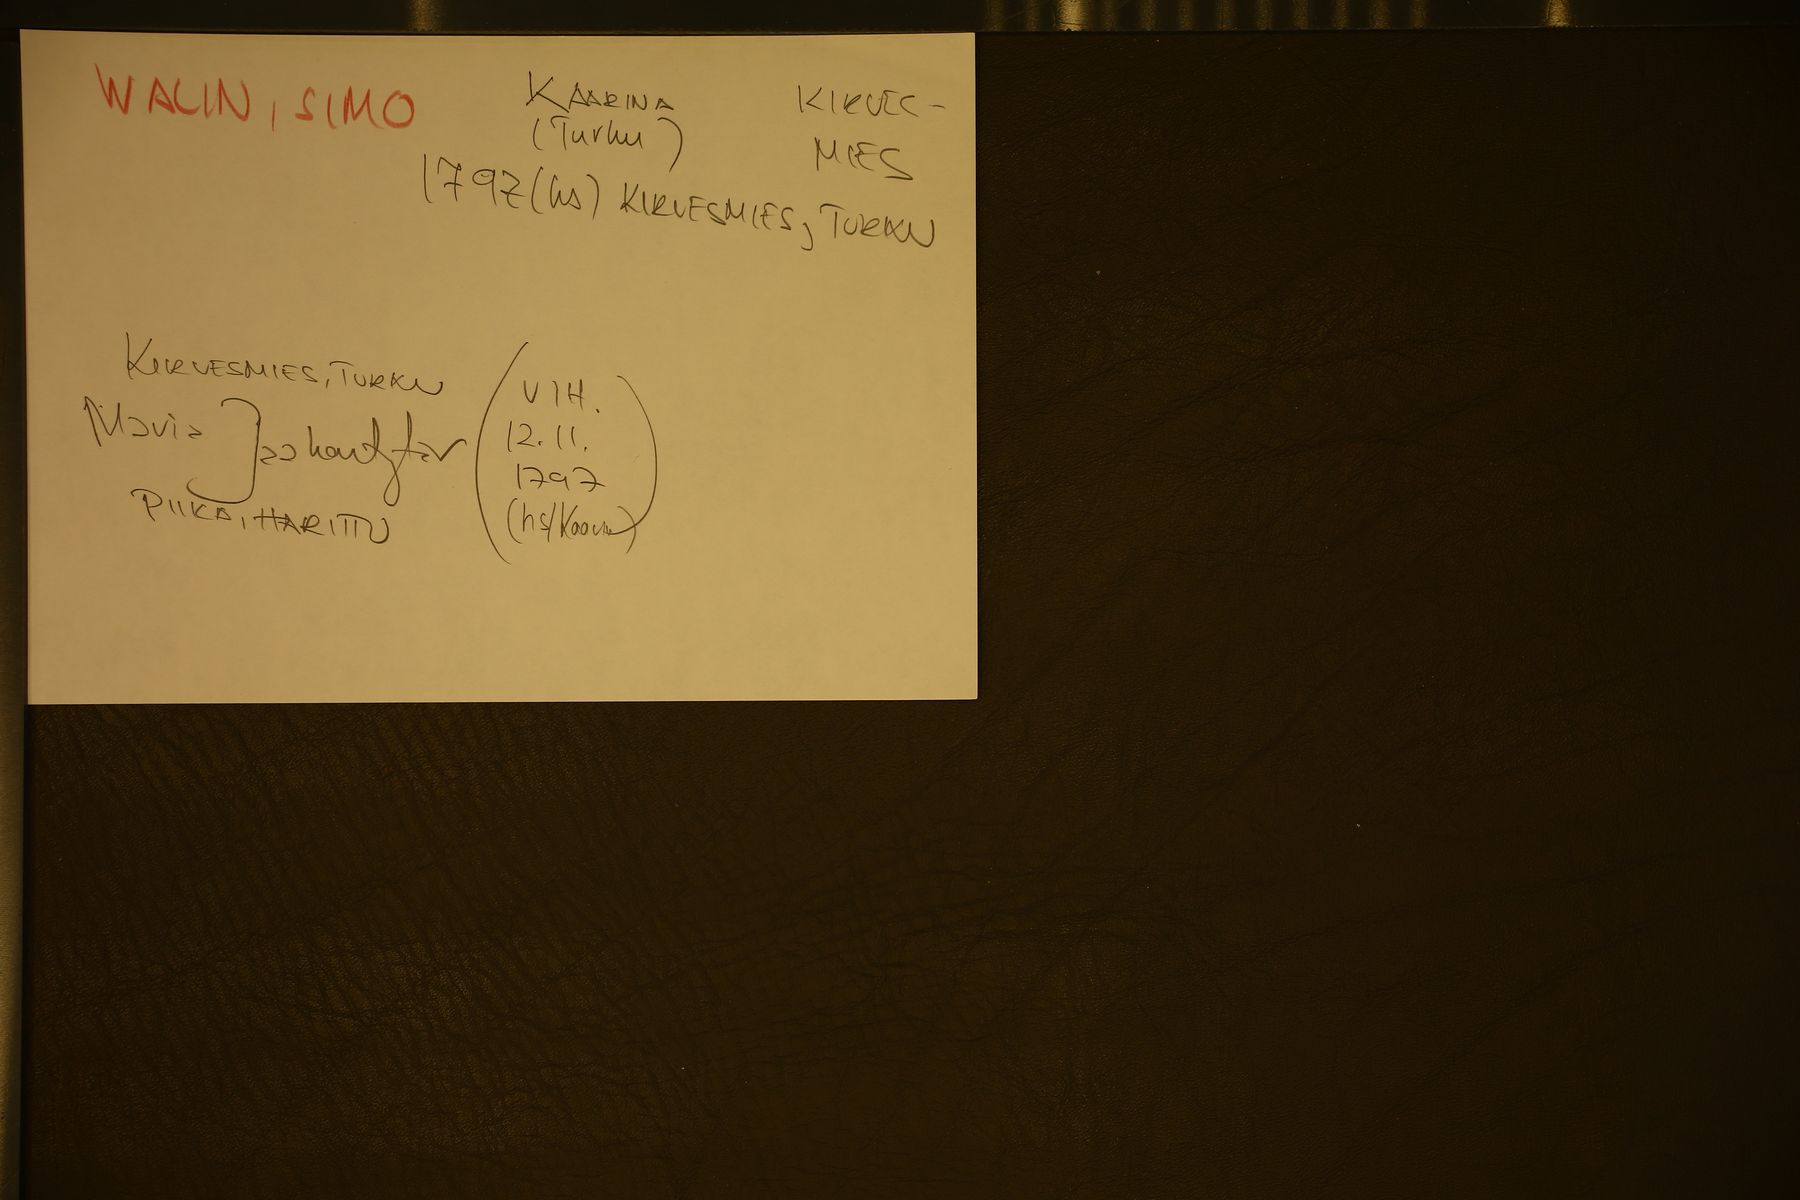 WALIN, SIMO
KAARINA
(Turku)
KIRVES-
MIES
1797 (hs) KIRVESMIES, TURKU
KIRVESMIES, TURKU
Maria
PIIKA, HARITTU
(VIH.
12.11.
1797
(hs/Kaarina)